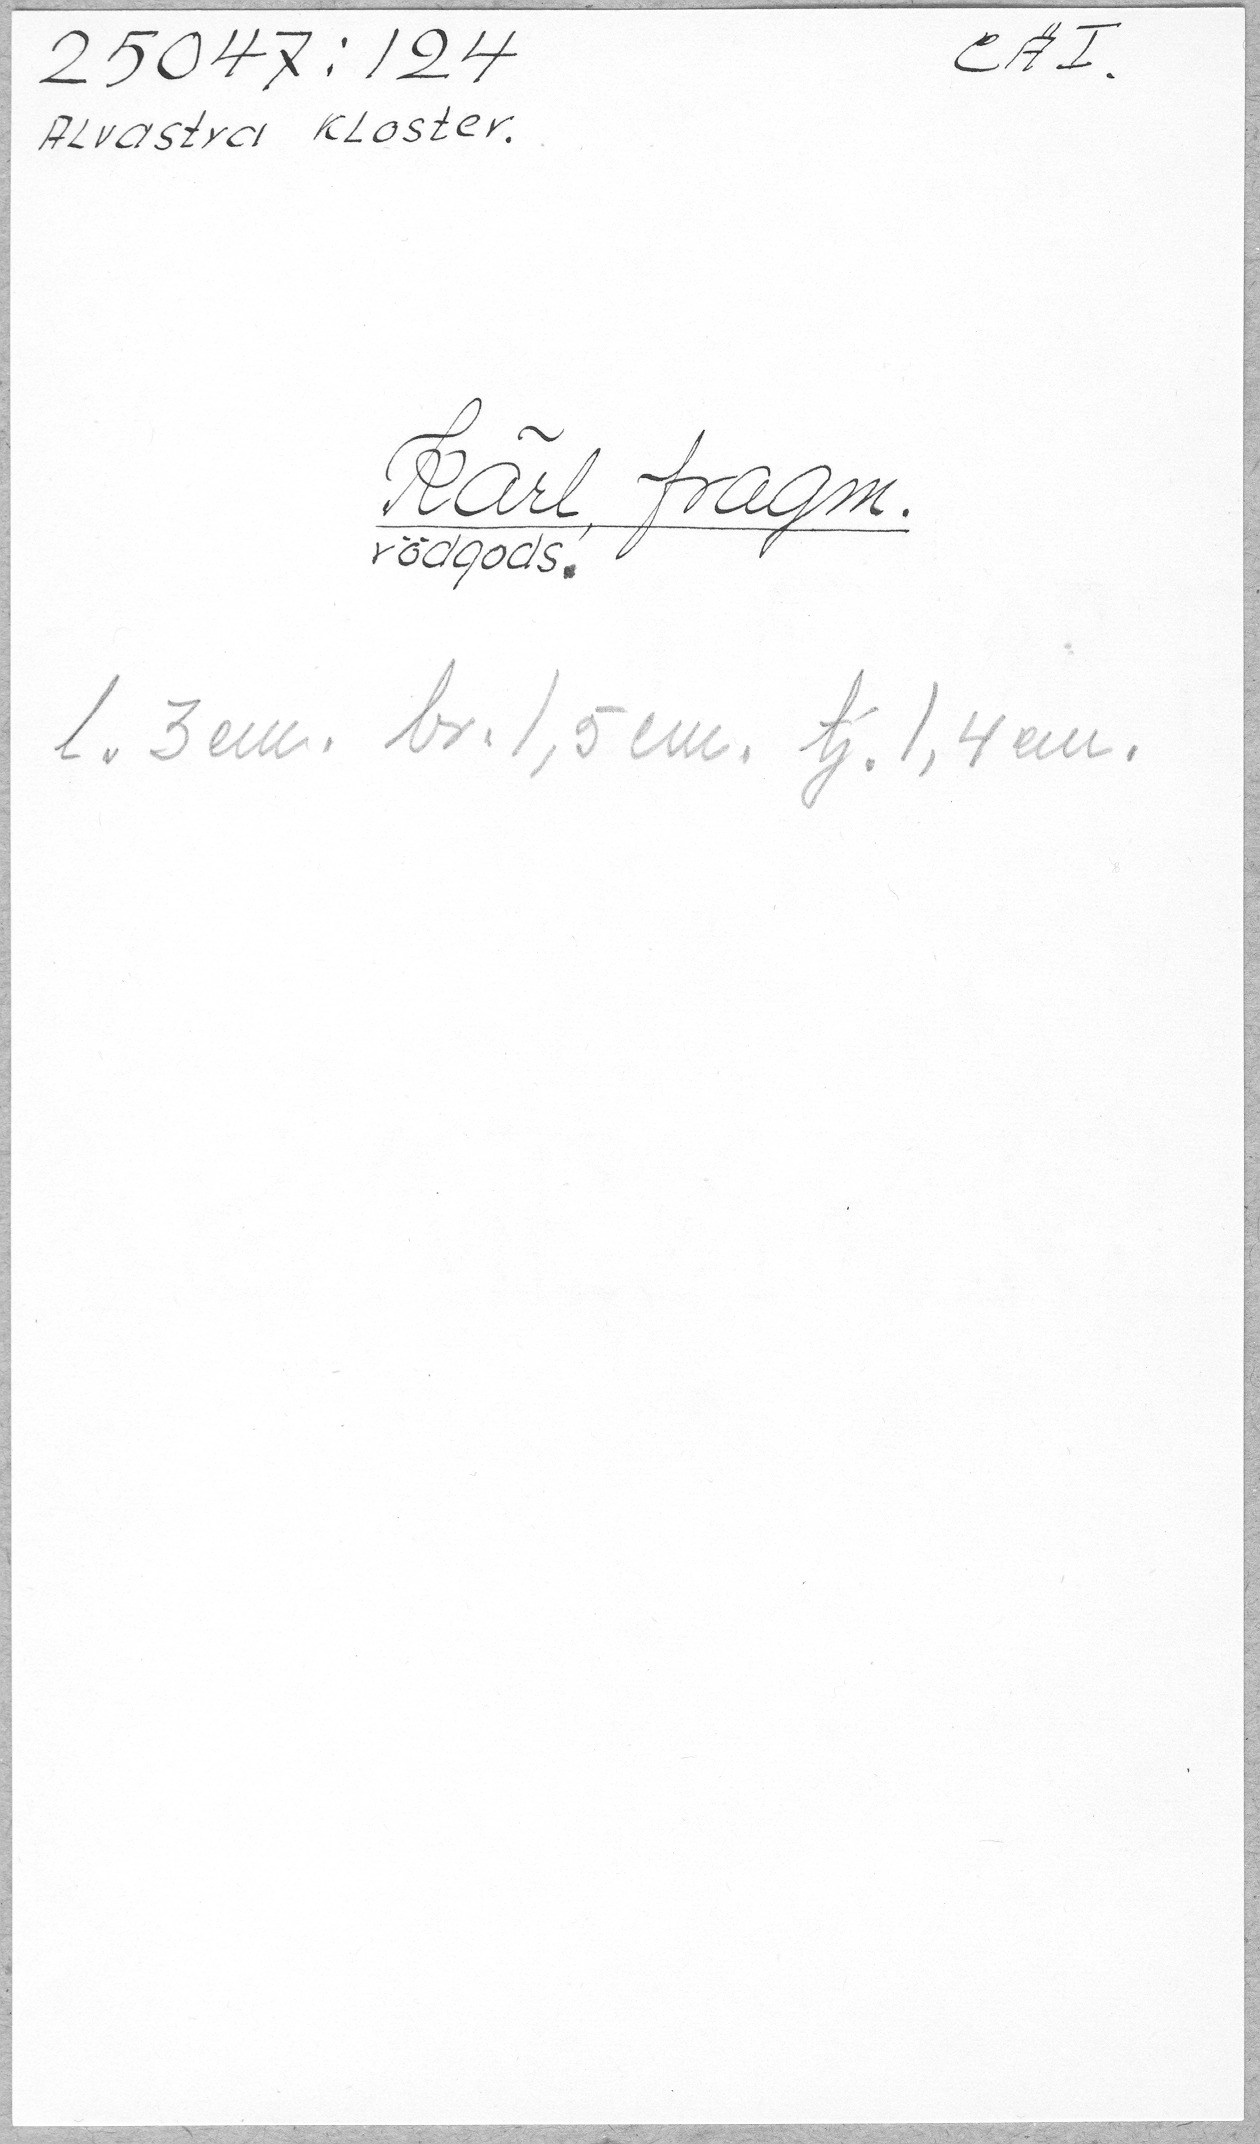 25047:124 CÄI.
Alvastra Kloster.
Kärl, fragm.
rödgods.
l. 3 cm. br. 1,5 cm. tj. 1,4 cm.